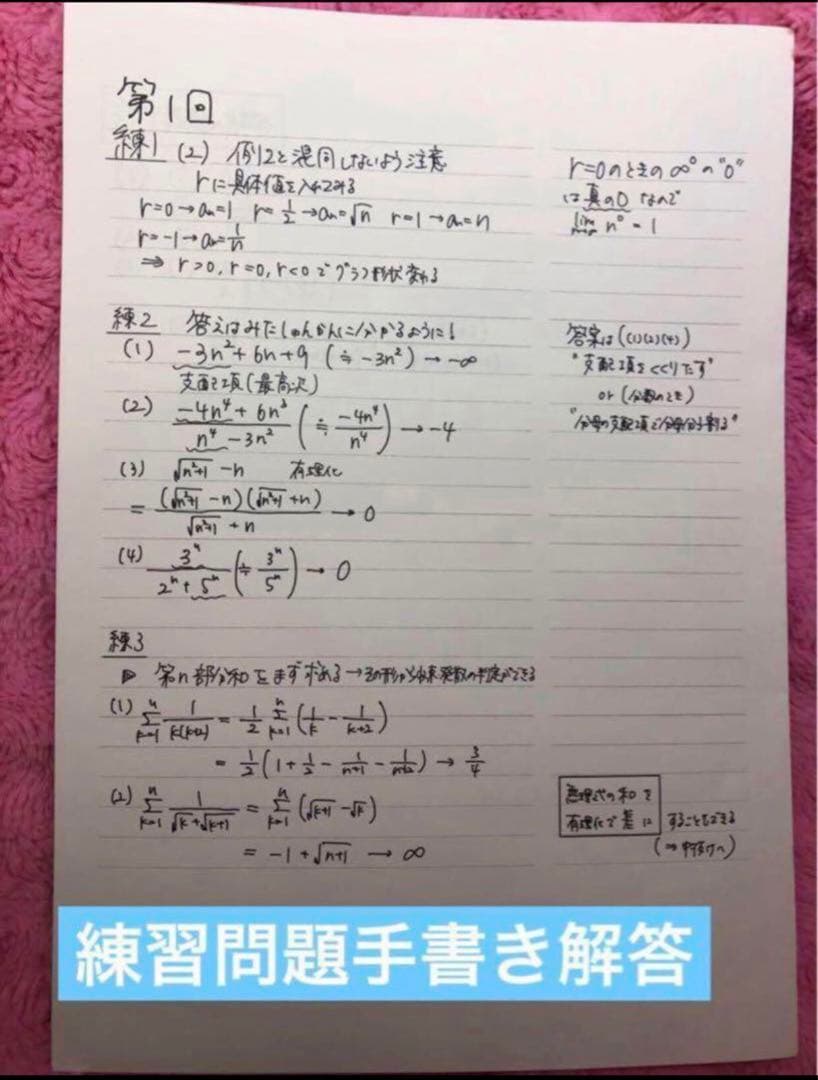 第1回
練1 (2) 例12と混同しないよう注意
rに具体値を入れてみる
r=0→aₙ=1 r=1/2→aₙ=√n r=1→aₙ=n
r=-1→aₙ=1/n
⇒ r>0, r=0, r<0でグラフ形状変わる
r=0のときの∞⁰の"0"
は真の0なので
lim n⁰=1
練2 答えはみたしゅんかんに分かるように!
(1) -3n²+6n+9 (≒-3n²)→-∞
支配項(最高次)
(2) (-4n⁴+6n³)/(n⁴-3n²) (≒ -4n⁴/n⁴)→-4
(3) √(n²+1) -n 有理化
= (√(n²+1) -n)(√(n²+1) +n)/(√(n²+1) +n) → 0
(4) 3ⁿ/(2ⁿ+5ⁿ) (≒ 3ⁿ/5ⁿ) → 0
答案は((1)(2)(4))
"支配項をくくりだす"
or (分数のとき)
"分母の支配項で分母分子割る"
練3
▷ 第n部分和をまず求める→その形から収束発散の判定ができる
(1) Σ[k=1,n] 1/(k(k+2)) = 1/2 Σ[k=1,n] (1/k - 1/(k+2))
= 1/2 (1+1/2 - 1/(n+1) - 1/(n+2)) → 3/4
(2) Σ[k=1,n] 1/(√k+√(k+1)) = Σ[k=1,n] (√(k+1) -√k)
= -1+√(n+1) → ∞
無理式の和を
有理化で差に することもできる
練習問題手書き解答